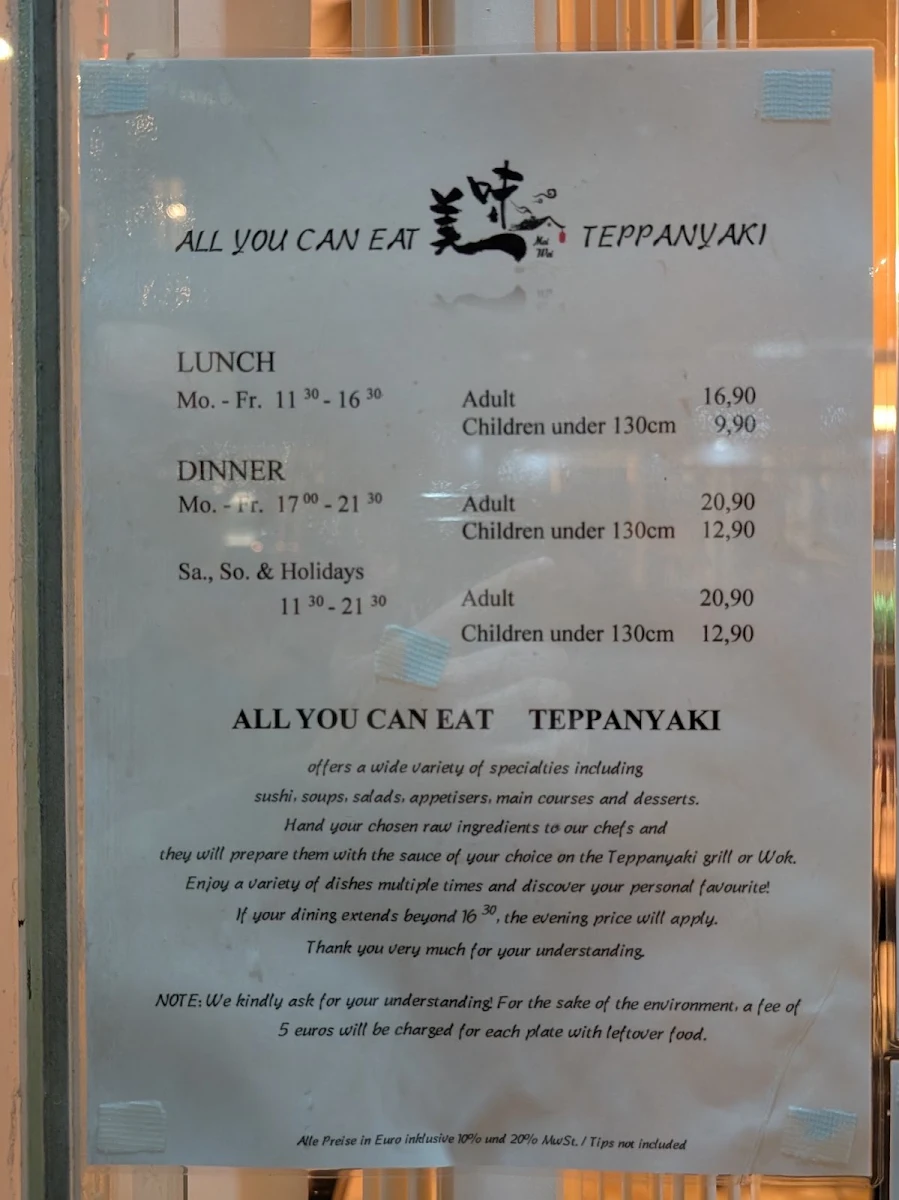 ALL YOU CAN EAT 美味 Mei Wei TEPPANYAKI
LUNCH
Mo. - Fr. 11 30 - 16 30 Adult 16,90
Children under 130cm 9,90
DINNER
Mo. - Fr. 17 00 - 21 30 Adult 20,90
Children under 130cm 12,90
Sa., So. & Holidays
11 30 - 21 30 Adult 20,90
Children under 130cm 12,90
ALL YOU CAN EAT TEPPANYAKI
offers a wide variety of specialties including
sushi, soups, salads, appetisers, main courses and desserts.
Hand your chosen raw ingredients to our chefs and
they will prepare them with the sauce of your choice on the Teppanyaki grill or Wok.
Enjoy a variety of dishes multiple times and discover your personal favourite!
If your dining extends beyond 16 30, the evening price will apply.
Thank you very much for your understanding.
NOTE: We kindly ask for your understanding! For the sake of the environment, a fee of
5 euros will be charged for each plate with leftover food.
Alle Preise in Euro inklusive 10% und 20% MwSt. / Tips not included